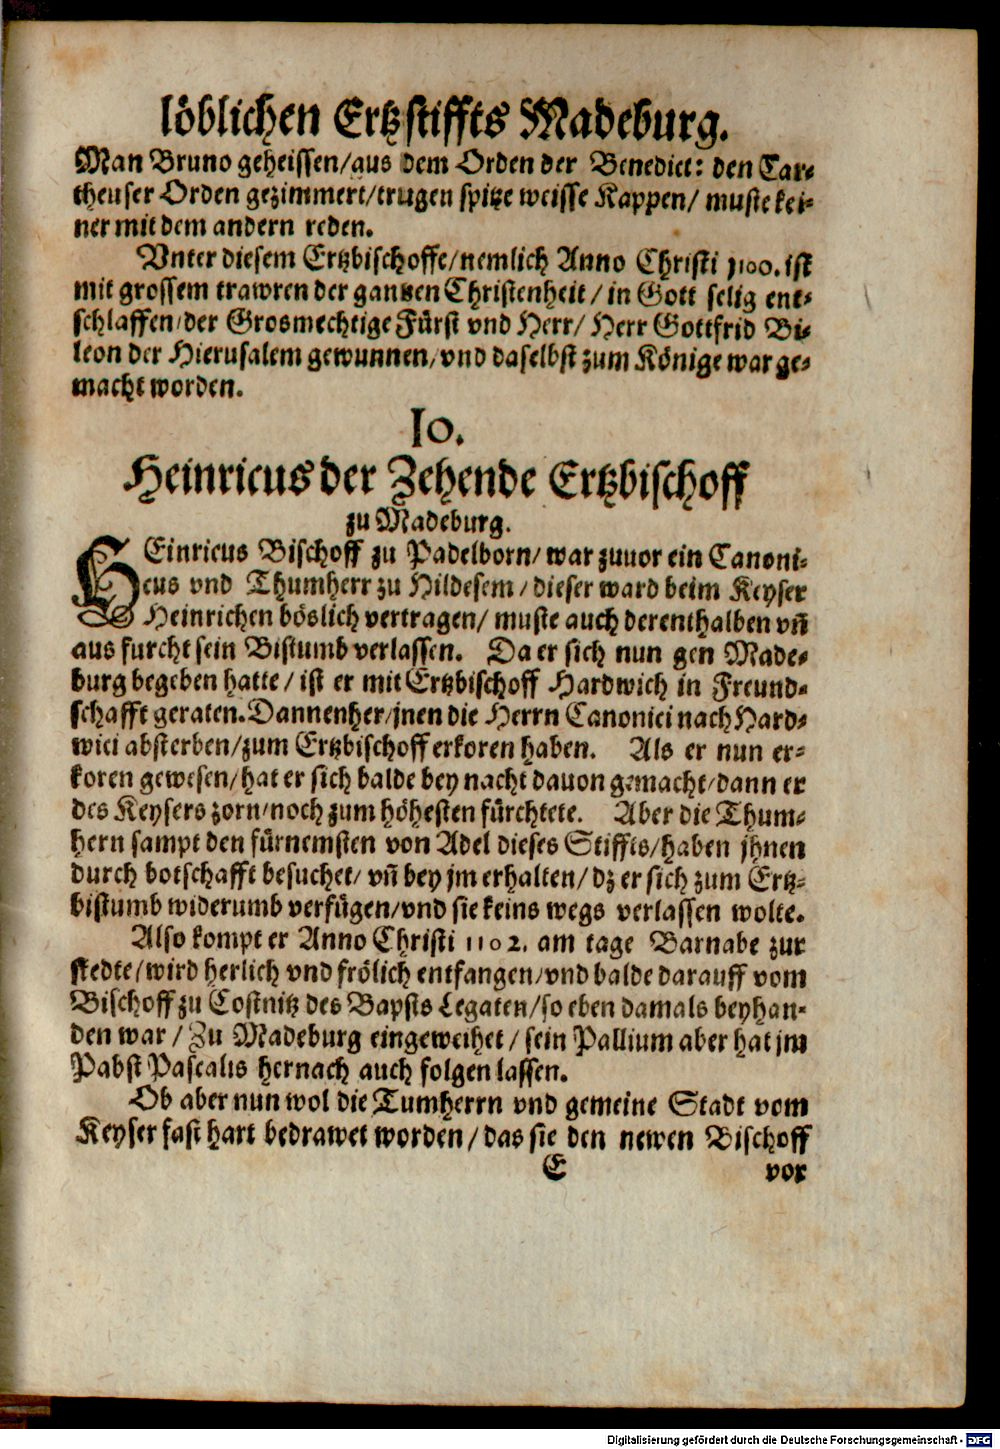 löblichen Ertzstiffts Madeburg.
Man Bruno geheissen/aus dem Orden der Benedict: den Car-
theuser Orden gezimmert/trugen spitze weisse Kappen/ muste kei-
ner mit dem andern reden.
Vnter diesem Ertzbischoffe/nemlich Anno Christi 1100. ist
mit grossem trawren der gantzen Christenheit/ in Gott selig ent-
schlaffen/der Grosmechtige Fürst vnd Herr/ Herr Gottfrid Bi-
leon der Hierusalem gewunnen/vnd daselbst zum Könige war ge-
macht worden.
10.
Heinricus der Zehende Ertzbischoff
zu Madeburg.
HEinricus Bischoff zu Padelborn/ war zuuor ein Canoni-
cus vnd Thumherr zu Hildesem/ dieser ward beim Keyser
Heinrichen böslich vertragen/ muste auch derenthalben vñ
aus furcht sein Bistumb verlassen. Da er sich nun gen Made-
burg begeben hatte/ ist er mit Ertzbischoff Hardwich in Freund-
schafft geraten. Dannenher/jnen die Herrn Canonici nach Hard-
wici absterben/zum Ertzbischoff erkoren haben. Als er nun er-
koren gewesen/hat er sich balde bey nacht dauon gemacht/dann er
des Keysers zorn/noch zum höhesten fürchtete. Aber die Thum-
hern sampt den fürnemsten von Adel dieses Stiffts/haben jhnen
durch botschafft besuchet/ vñ bey jm erhalten/ dz er sich zum Ertz-
bistumb widerumb verfügen/vnd sie keins wegs verlassen wolte.
Also kompt er Anno Christi 1102. am tage Barnabe zur
stedte/wird herlich vnd frölich entfangen/vnd balde darauff vom
Bischoff zu Costnitz des Bapsts Legaten/so eben damals beyhan-
den war/ Zu Madeburg eingeweihet/ sein Pallium aber hat jm
Pabst Pascalis hernach auch folgen lassen.
Ob aber nun wol die Tumherrn vnd gemeine Stadt vom
Keyser fast hart bedrawet worden/ das sie den newen Bischoff
E vor
Digitalisierung gefördert durch die Deutsche Forschungsgemeinschaft - DFG